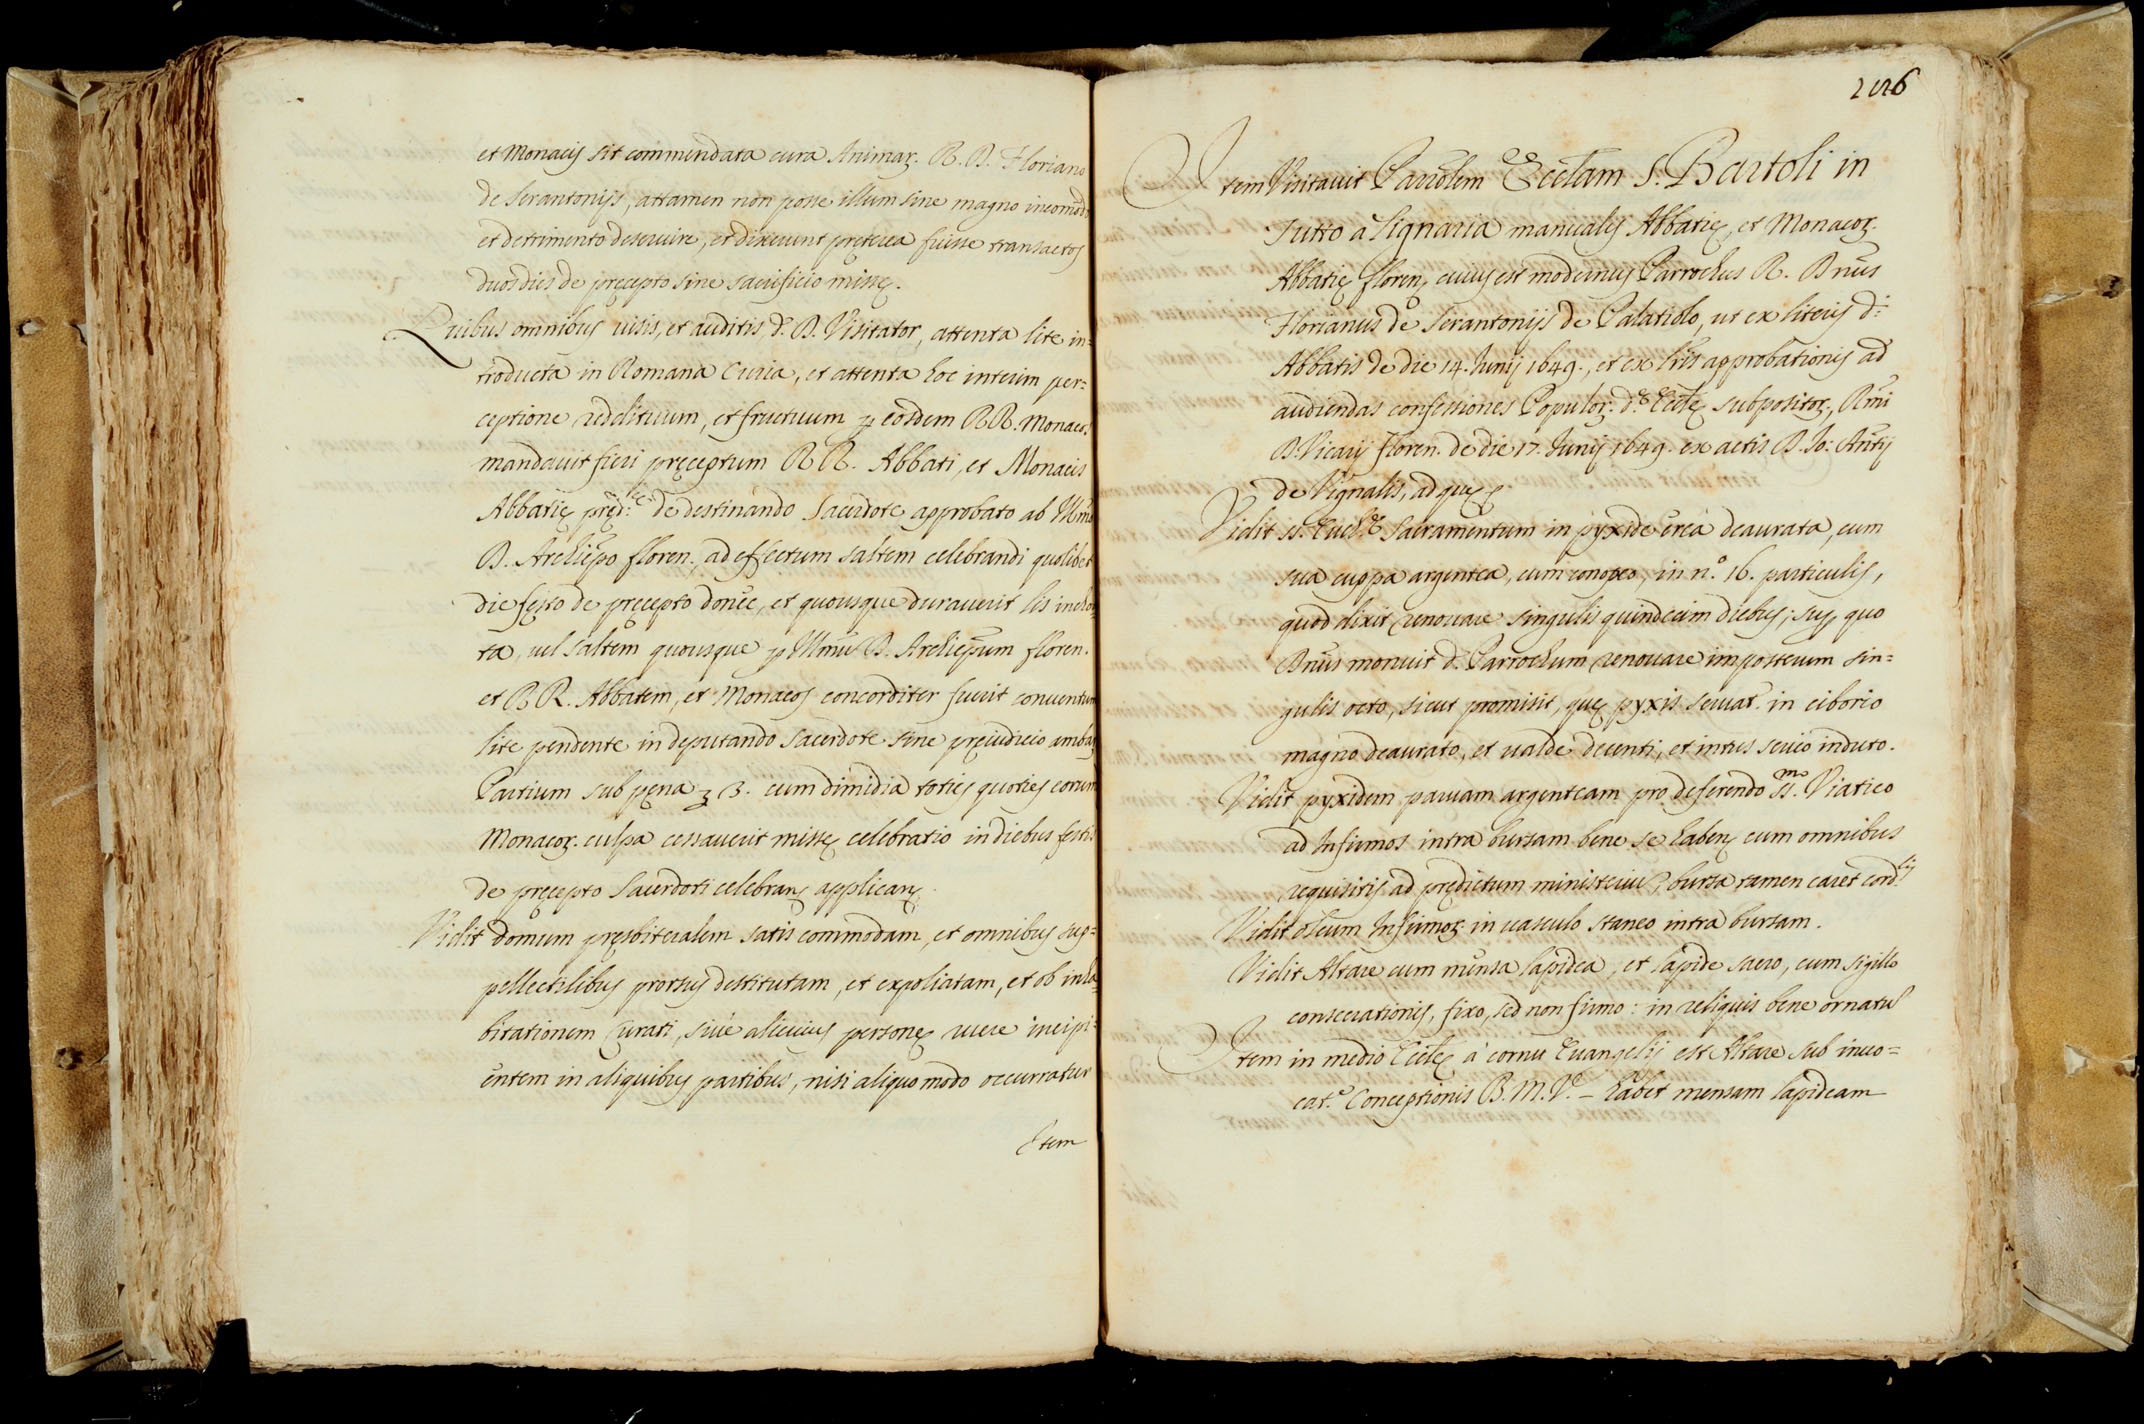 et Monacis sit commendata cura Animaꝝ. R. D. Floriano
de Serantonijs, attamen non posse illum sine magno incomodo
et detrimento deservire, et dixerunt pręterea fuisse transactos
duos dies de pręcepto sine sacrificio missę.
Quibus omnibus visis, et auditis, d.s D. Visitator, attenta lite in=
troducta in Romana Curia, et attenta hoc interim per=
ceptione reddituum, et fructuum ꝑ eosdem RR. Monacos
mandavit fieri pręceptum RR. Abbati, et Monacis
Abbatię pręd.ę de destinando Sacerdote approbato ab Illmo
D. Archiepo floren., ad effectum saltem celebrandi quolibet
die festo de pręcepto donec, et quousque duraverit lis inchoa=
ta, vel saltem quousque ꝑ Illmu D. Archiepum floren.
et RR. Abbatem, et Monacos concorditer fuerit conventum
lite pendente in deputando Sacerdote sine pręiudicio ambaꝝ
Partium sub pęna ʒ 3. cum dimidia toties quoties eorum
Monacoꝝ. culpa cessaverit missę celebratio in diebus festis
de pręcepto Sacerdoti celebranꝫ applicanꝫ.
Vidit domum pręsbiteralem satis commodam, et omnibus sup=
pellectilibus prorsus destitutam, et expoliatam, et ob inha=
bitationem Curati, sive alicuius personę ruere incipi=
entem in aliquibus partibus, nisi aliquo modo occurratur
Item
206
Item Visitavit Paroolem Ecclam S. Bartoli in
Tutto à Signaria manualis Abbatię, et Monacoꝝ.
Abbatię floren, cuius est modernus Parrochus R. Dnus
Florianus de Serantonijs de Palatiolo, ut ex literis d.i
Abbatis de die 14. Junij 1649., et ex lris approbationis ad
audiendas confessiones Populoꝝ d.ę Ecclę subpositoꝝ, Rmi
D. Vicarij Floren. de die 17. Junij 1649. ex actis D. Jo: Antij
de Vignalis, ad quę ꝫ
Vidit ss. Euch.ę Sacramentum in pyxide ęrea deaurata, cum
sua cuppa argentea, cum conopeo, in n.o 16. particulis,
quod dixit renovare singulis quindecim diebus; sup quo
Dnus monuit d. Parrochum renovare imposterum sin=
gulis octo, sicut promisit, quę pyxis servat. in ciborio
magno deaurato, et valde decenti, et intus serico induto.
Vidit pyxidem parvam argenteam pro deferendo SS.mo Viatico
ad Infirmos intra bursam bene se habenꝫ cum omnibus
requisitis ad prędictum ministeriu, bursa tamen caret cord.lis
Vidit oleum Infirmoꝝ in vasculo staneo intra bursam.
Vidit Altare cum mensa lapidea, et lapide sacro, cum sigillo
consecrationis, fixo, sed non firmo: in reliquis bene ornatu
Item in medio Ecclę à cornu Evangelij est Altare sub invo=
cat.e Conceptionis B. M. V. – habet mensam lapideam